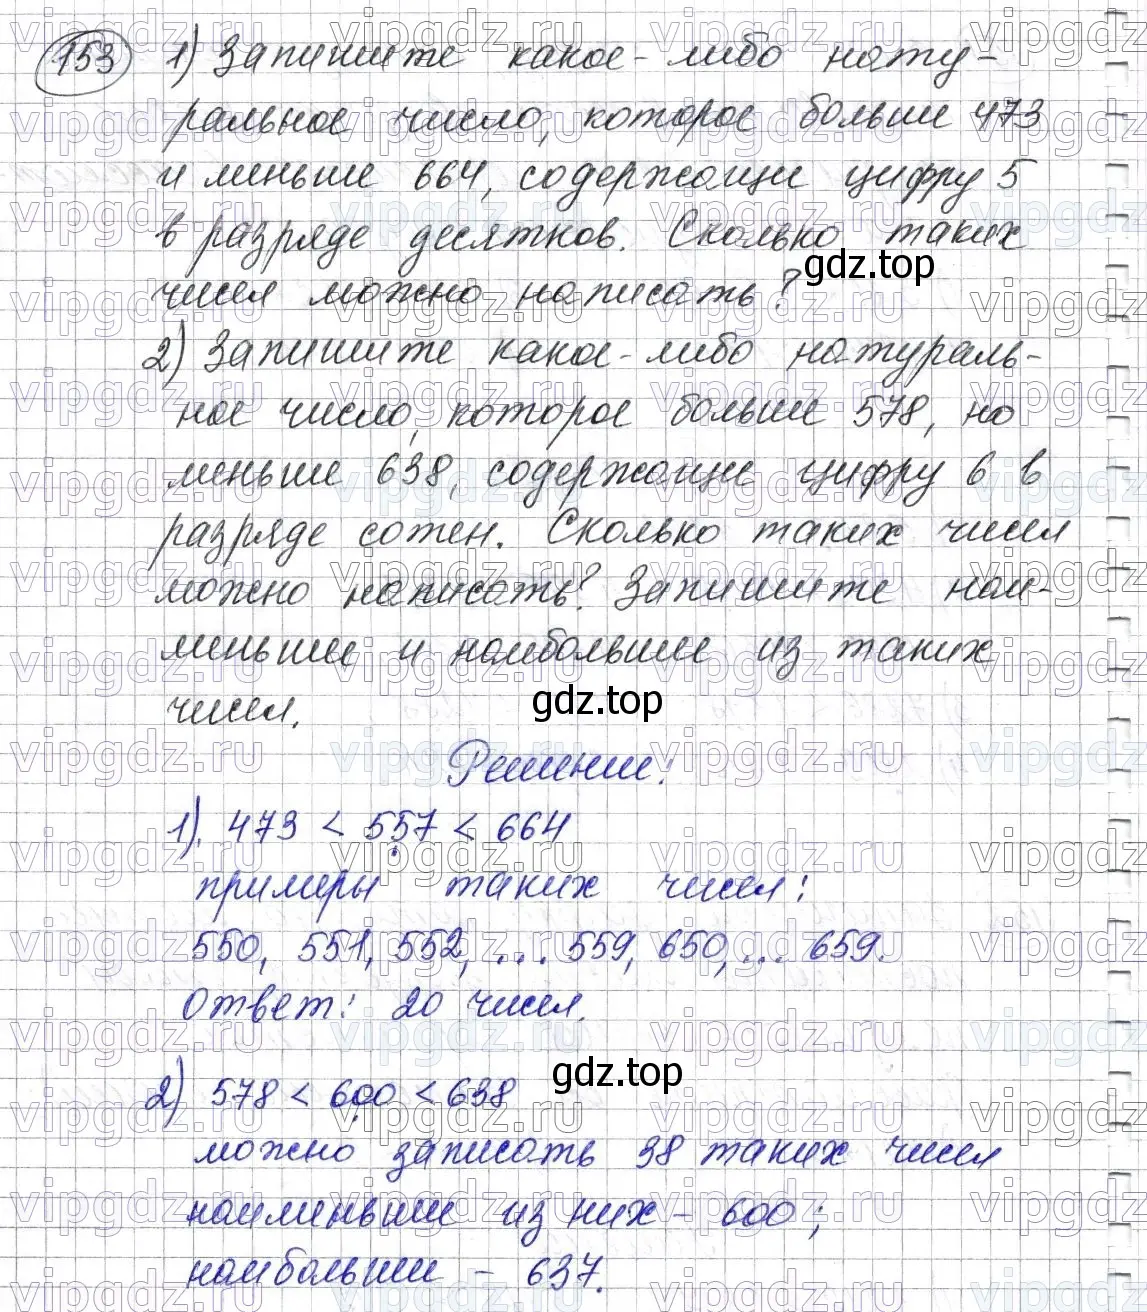 153 1) Запишите какое-либо нату-
ральное число, которое больше 473
и меньше 664, содержащие цифру 5
в разряде десятков. Сколько таких
gdz.top
чисел можно написать?
2) Запишите какое-либо натураль-
ное число, которое больше 578, но
меньше 638, содержащие цифру 6 в
разряде сотен. Сколько таких чисел
можно написать? Запишите наи-
меньшее и наибольшее из таких
gdz.top
чисел.
Решение:
1). 473 < 557 < 664
примеры таких чисел:
550, 551, 552, ... 559, 650, ... 659.
Ответ: 20 чисел.
gdz.top
2) 578 < 600 < 638
можно записать 38 таких чисел
наименьшее из них - 600;
наибольшее - 637.